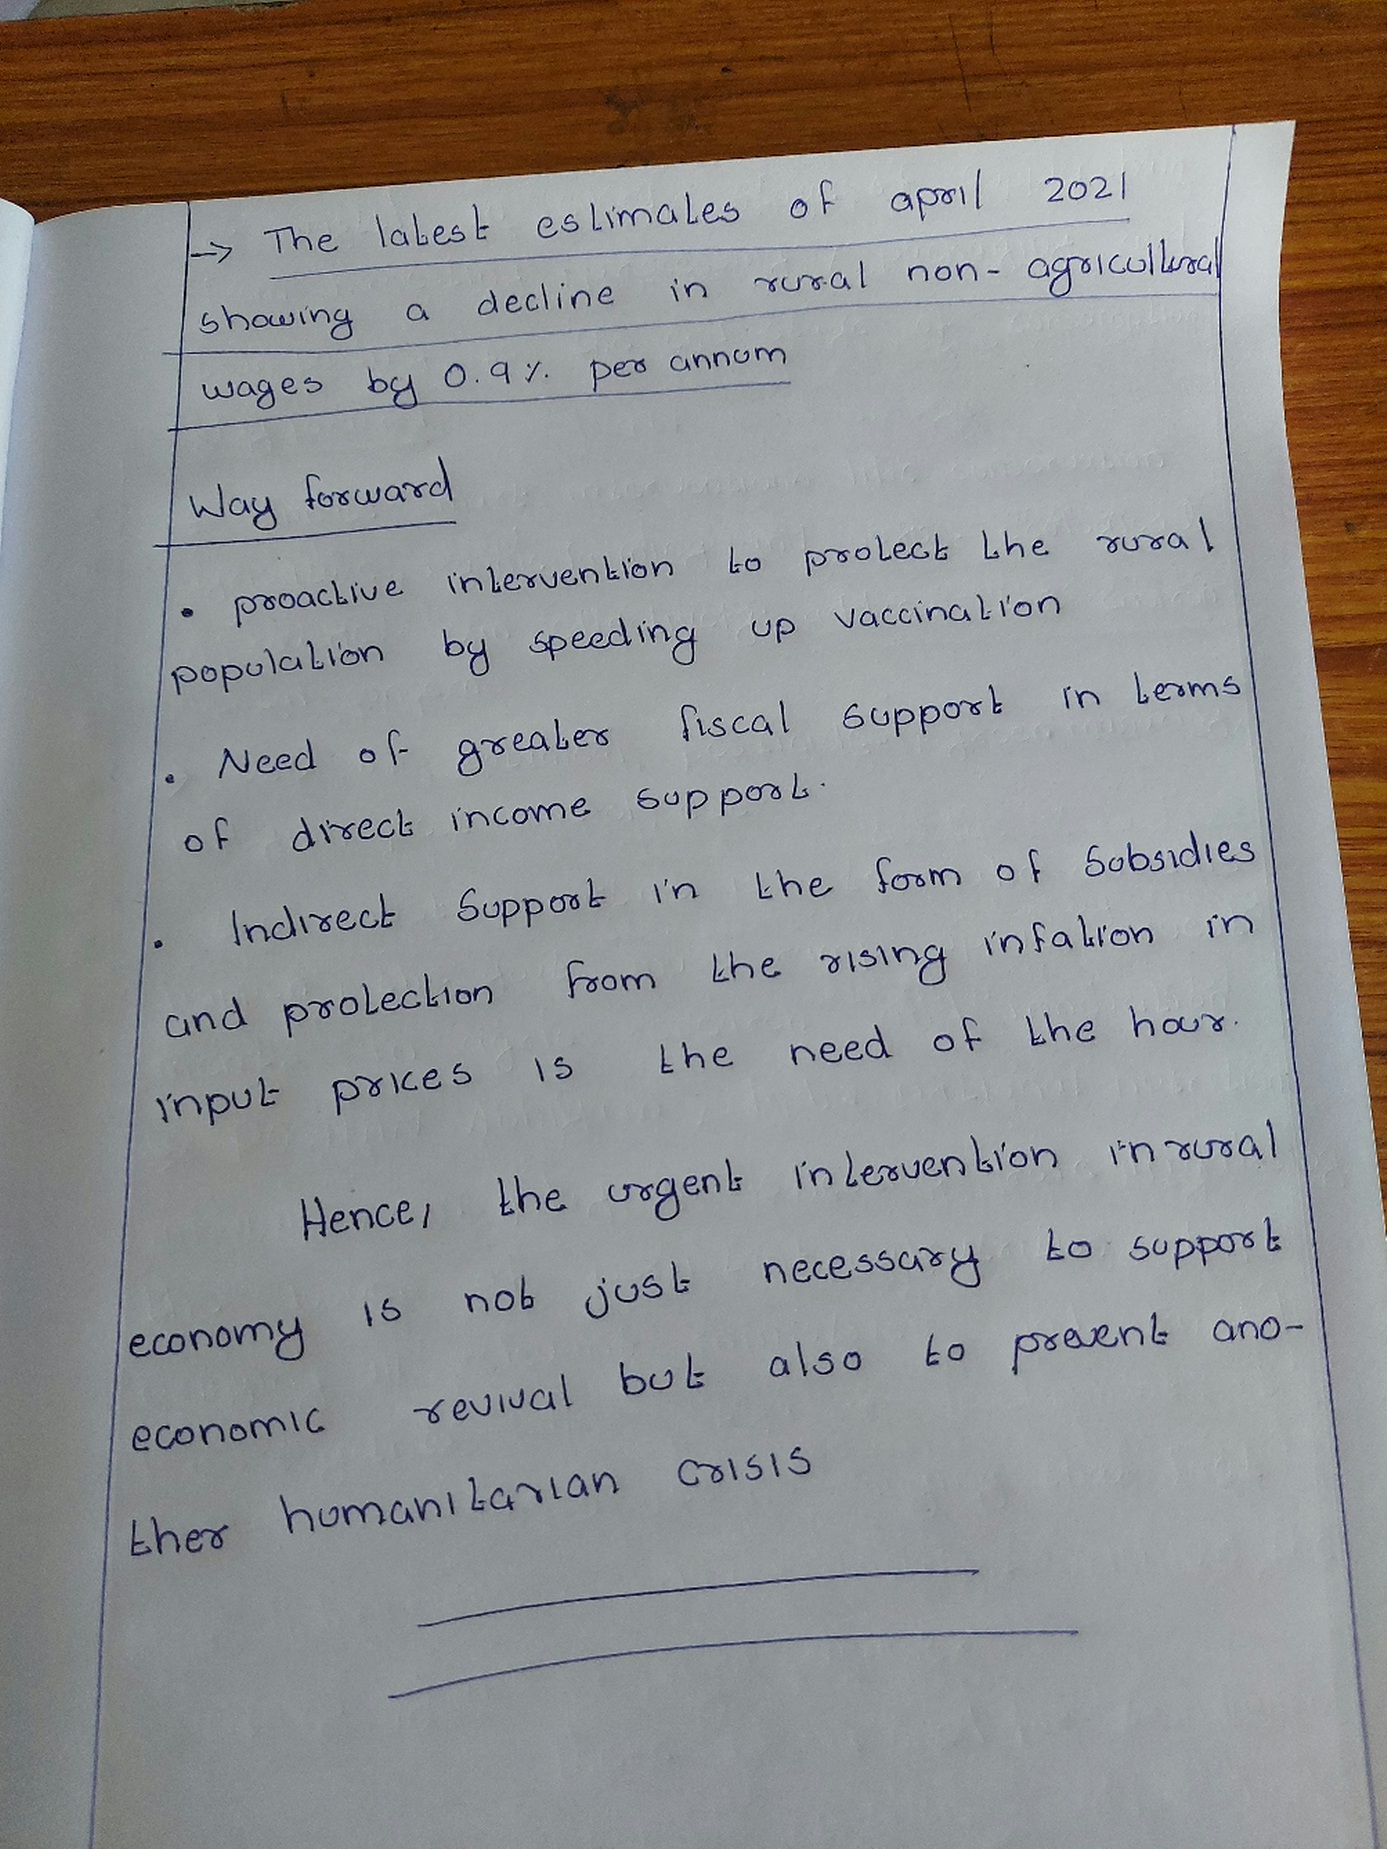 → The latest estimates of april 2021
showing a decline in rural non-agricultural
wages by 0.9% per annum
Way forward
• proactive intervention to protect the rural
population by speeding up vaccination
• Need of greater fiscal support in terms
of direct income support.
• Indirect support in the form of subsidies
and protection from the rising infation in
input prices is the need of the hour.
Hence, the urgent intervention in rural
economy is not just necessary to support
economic revival but also to prevent ano-
ther humanitarian crisis